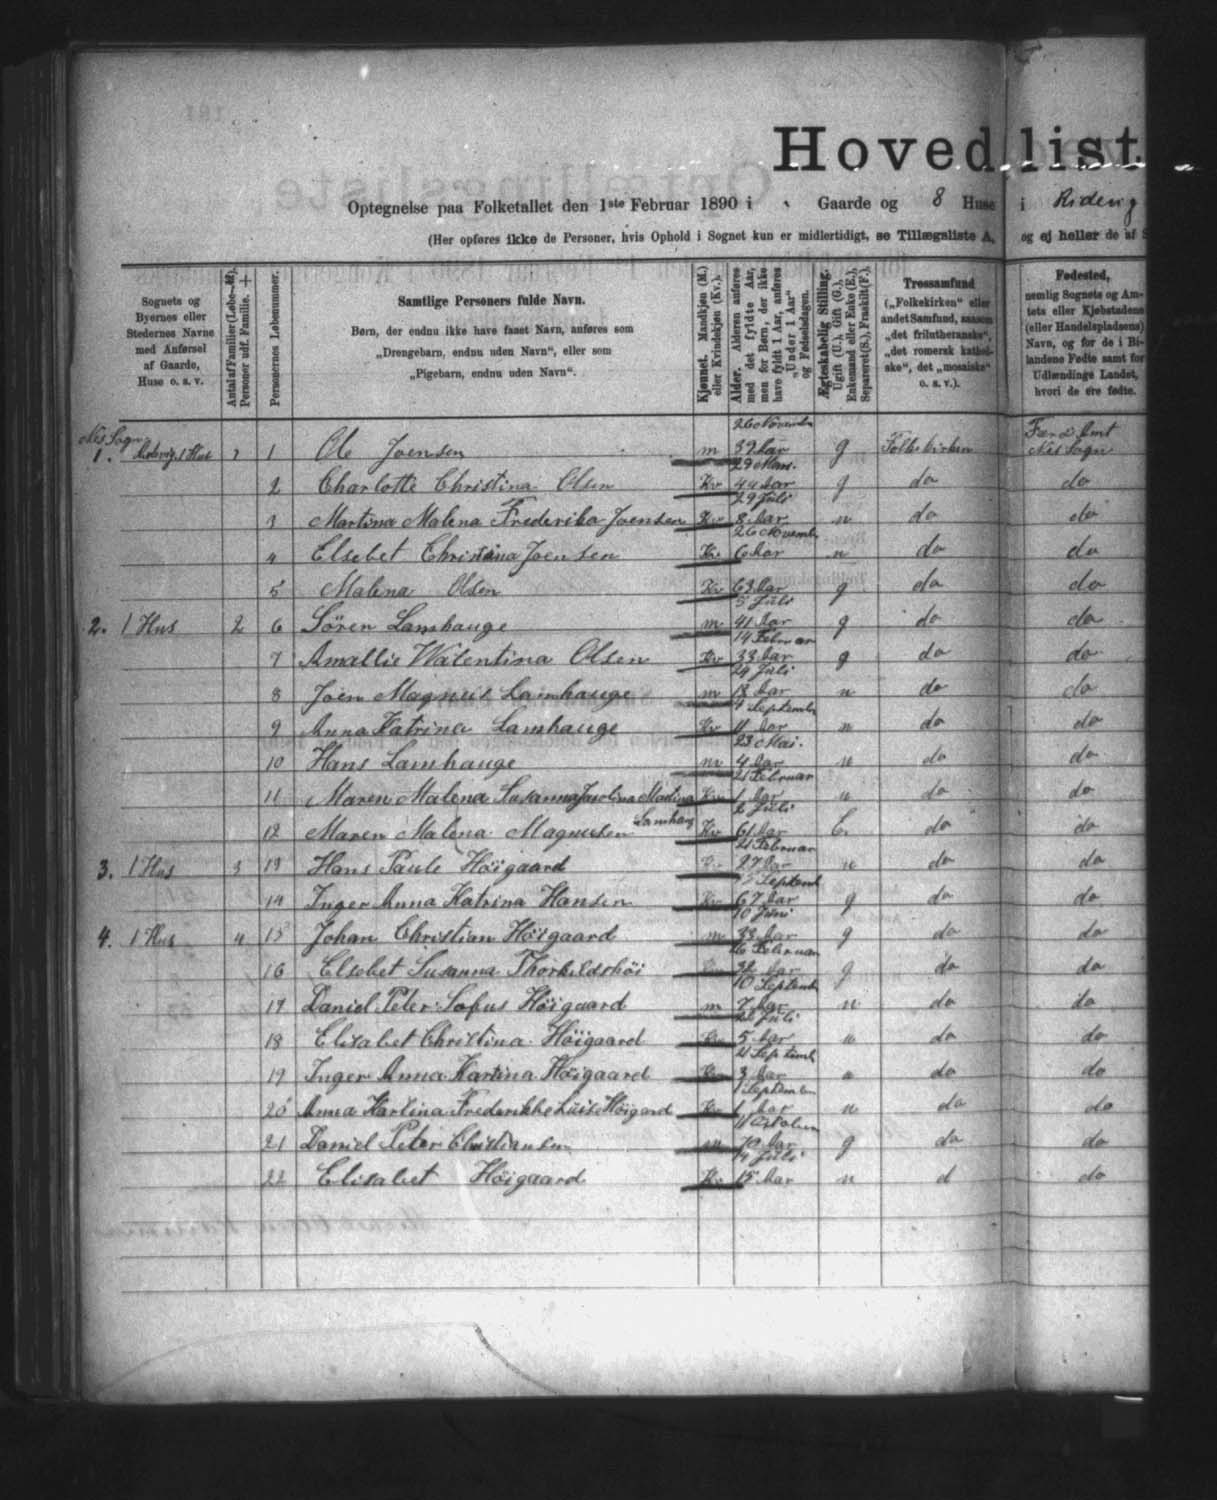 Hovedlist
Optegnelse paa Folketallet den 1ste Februar 1890 i Gaarde og 8 Huse i
(Her opføres ikke de Personer, hvis Ophold i Sognet kun er midlertidigt, se Tillægsliste A, og ej heller de af S
Sognets og Byernes eller Stedernes Navne med Anførsel af Gaarde, Huse o. s. v.
Antal af Familier (Løbe-N). Personer udf. Familie. +
Personernes Løbenummer.
Samtlige Personers fulde Navn.
Børn, der endnu ikke have faaet Navn, anføres som
„Drengebarn, endnu uden Navn“, eller som
„Pigebarn, endnu uden Navn“.
Kjønnet. Mandkjøn (M.) eller Kvindekjøn (Kv.).
Alder. Alderen anføres med det fyldte Aar, men for Børn, der ikke have fyldt 1 Aar, anføres „Under 1 Aar“ og Fødselsdagen.
Ægteskabelig Stilling. Ugift (U.), Gift (G.), Enkemand eller Enke (E.), Separeret (S.), Fraskilt (F.).
Trossamfund („Folkekirken“ eller andet Samfund, saasom „det frilutheranske“, „det romersk kathol- ske“, det „mosaiske“ o. s. v.).
Fødested, nemlig Sognets og Am- tets eller Kjøbstadens (eller Handelspladsens) Navn, og for de i Bi- landene Fødte samt for Udlændinge Landet, hvori de ere fødte.
Nes Sogn 26 November Færø Amt
1. 1 Hus 1 1 Ole Joensen m 39 Aar g Folkekirken Nes Sogn
29 Mars.
2 Charlotte Christina Olsen Kv 44 Aar g do do
29 Juli
3 Martina Malena Frederika Joensen Kv 8 Aar u do do
26 Novemb
4 Elsebet Christina Joensen Kv 6 Aar u do do
5 Malena Olsen Kv 63 Aar g do do
5 Juli
2. 1 Hus 2 6 Sören Lamhauge m 41 Aar g do do
14 Februar
7 Amallie Walentina Olsen Kv 33 Aar g do do
29 Juli
8 Joen Magnus Lamhauge m 13 Aar u do do
9 Septemb
9 Anna Katrina Lamhauge Kv 11 Aar u do do
23 Mai.
10 Hans Lamhauge m 4 Aar u do do
21 Februar
11 Maren Malena Susanna Jacolina Martina Lamhaug Kv 1 Aar u do do
6 Juli
12 Maren Malena Magnusen Kv 61 Aar E. do do
21 Februar
3. 1 Hus 3 13 Hans Paule Höigaard 27 Aar u do do
Septemb
14 Inger Anna Katrina Hansen Kv 67 Aar g do do
10 Juni
4. 1 Hus 4 15 Johan Christian Höigaard m 33 Aar g do do
26 Februar
16 Elsebet Susanna Thorkildshöi Kv 32 Aar g do do
10 Septemb
17 Daniel Peter Sofus Höigaard m 7 Aar u do do
22 Juli
18 Elisabet Christina Höigaard Kv 5 Aar u do do
21 Septemb
19 Inger Anna Kartina Höigaard Kv 3 Aar u do do
1 Septemb
20 Anna Kartina Frederikke Luis Höigard Kv 1 Aar u do do
11 Octobeer
21 Daniel Peter Christiansen m 70 Aar g do do
4 Juli
22 Elisabet Höigaard Kv 15 Aar u d do